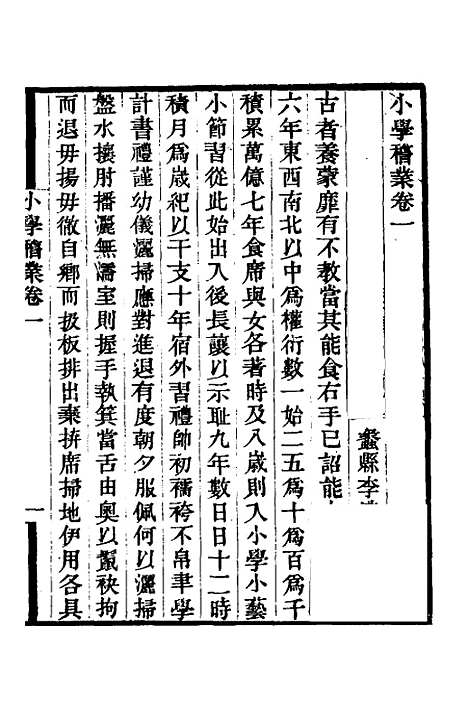 小學稽業卷一
蠡縣李
古者養蒙靡有不教當其能食右手已詔能
六年東西南北以中爲權衍數一始二五爲十爲百爲千
積累萬億七年食席與女各著時及八歲則入小學小藝
小節習從此始出入後長讓以示耻九年數日日十二時
積月爲歲紀以干支十年宿外習禮帥初襦袴不帛聿學
計書禮謹幼儀灑掃應對進退有度朝夕服佩何以灑掃
盤水攘肘播灑無濡室則握手執箕當舌由奧以鬣袂拘
而退毋揚毋徹自鄉而扱板排出棄拚席掃地伊用各具
小學稽業卷一
一